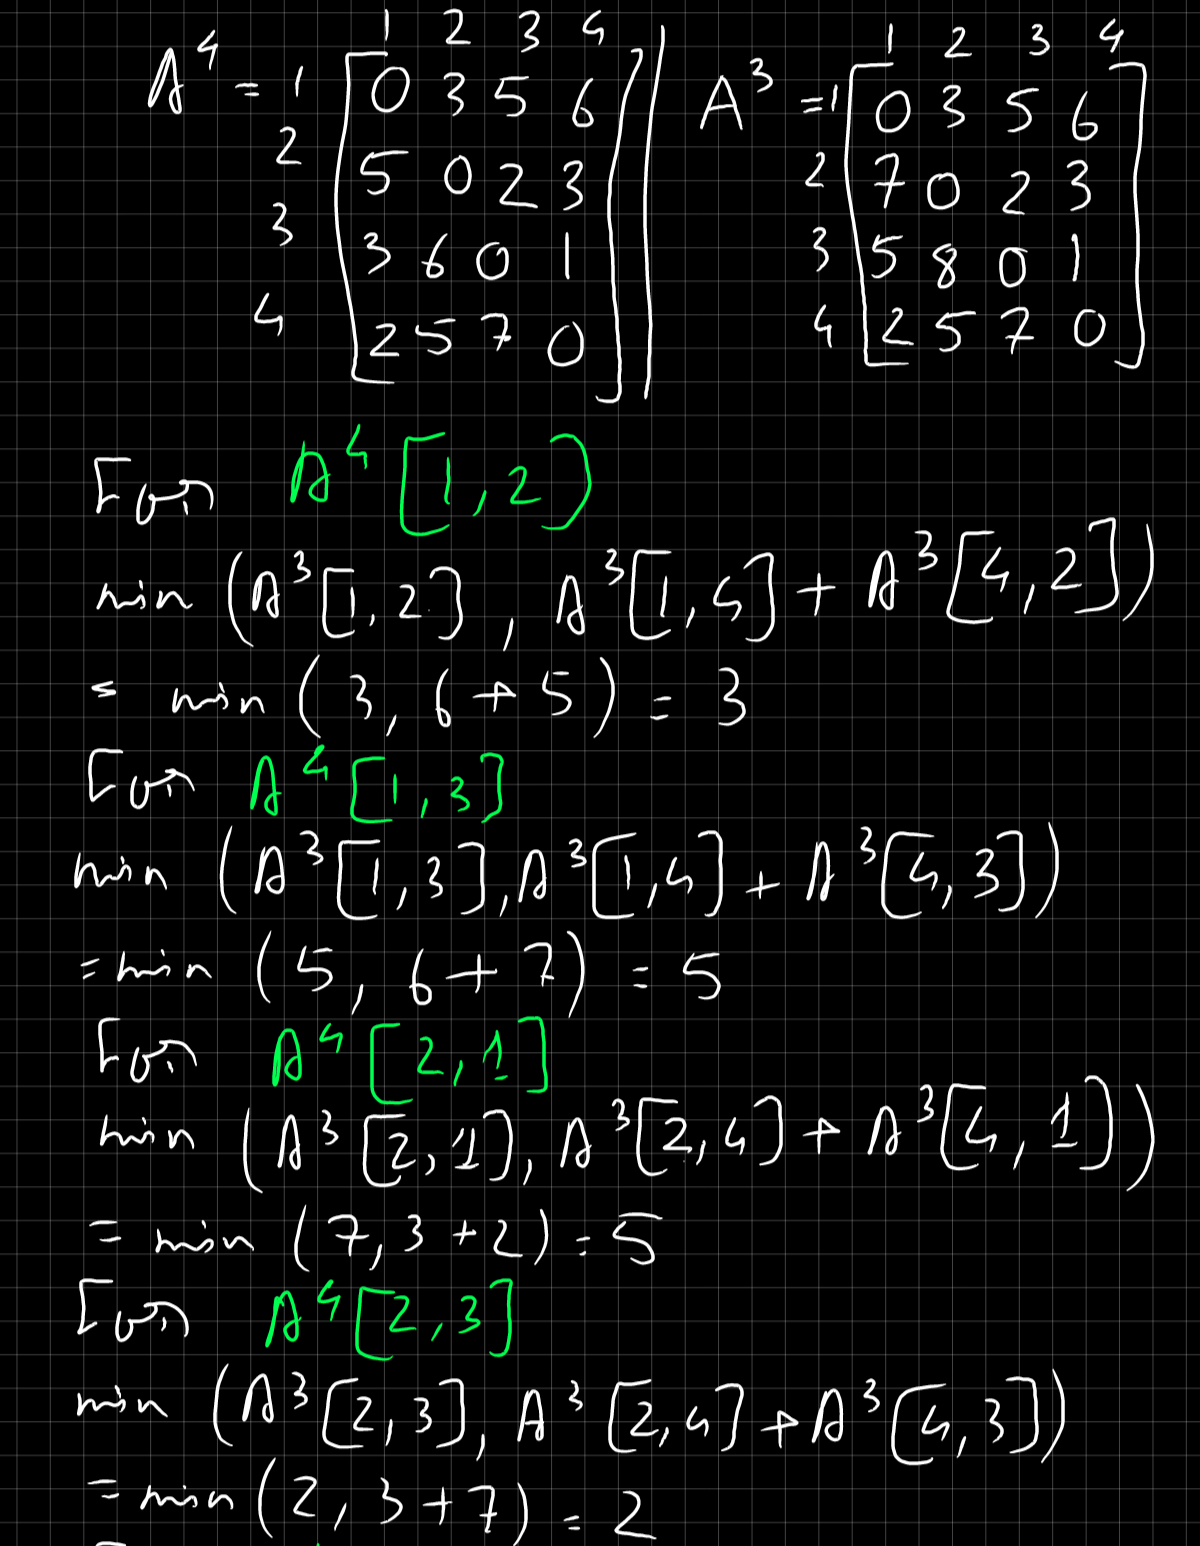 1 2 3 4
A⁴ = 1 [ 0 3 5 6
2 5 0 2 3
3 3 6 0 1
4 2 5 7 0 ]
1 2 3 4
A³ = 1 [ 0 3 5 6
2 7 0 2 3
3 5 8 0 1
4 2 5 7 0 ]
For A⁴ [1, 2]
min (A³ [1, 2], A³ [1, 4] + A³ [4, 2])
= min (3, 6 + 5) = 3
For A⁴ [1, 3]
min (A³ [1, 3], A³ [1, 4] + A³ [4, 3])
= min (5, 6 + 7) = 5
For A⁴ [2, 1]
min (A³ [2, 1], A³ [2, 4] + A³ [4, 1])
= min (7, 3 + 2) = 5
For A⁴ [2, 3]
min (A³ [2, 3], A³ [2, 4] + A³ [4, 3])
= min (2, 3 + 7) = 2